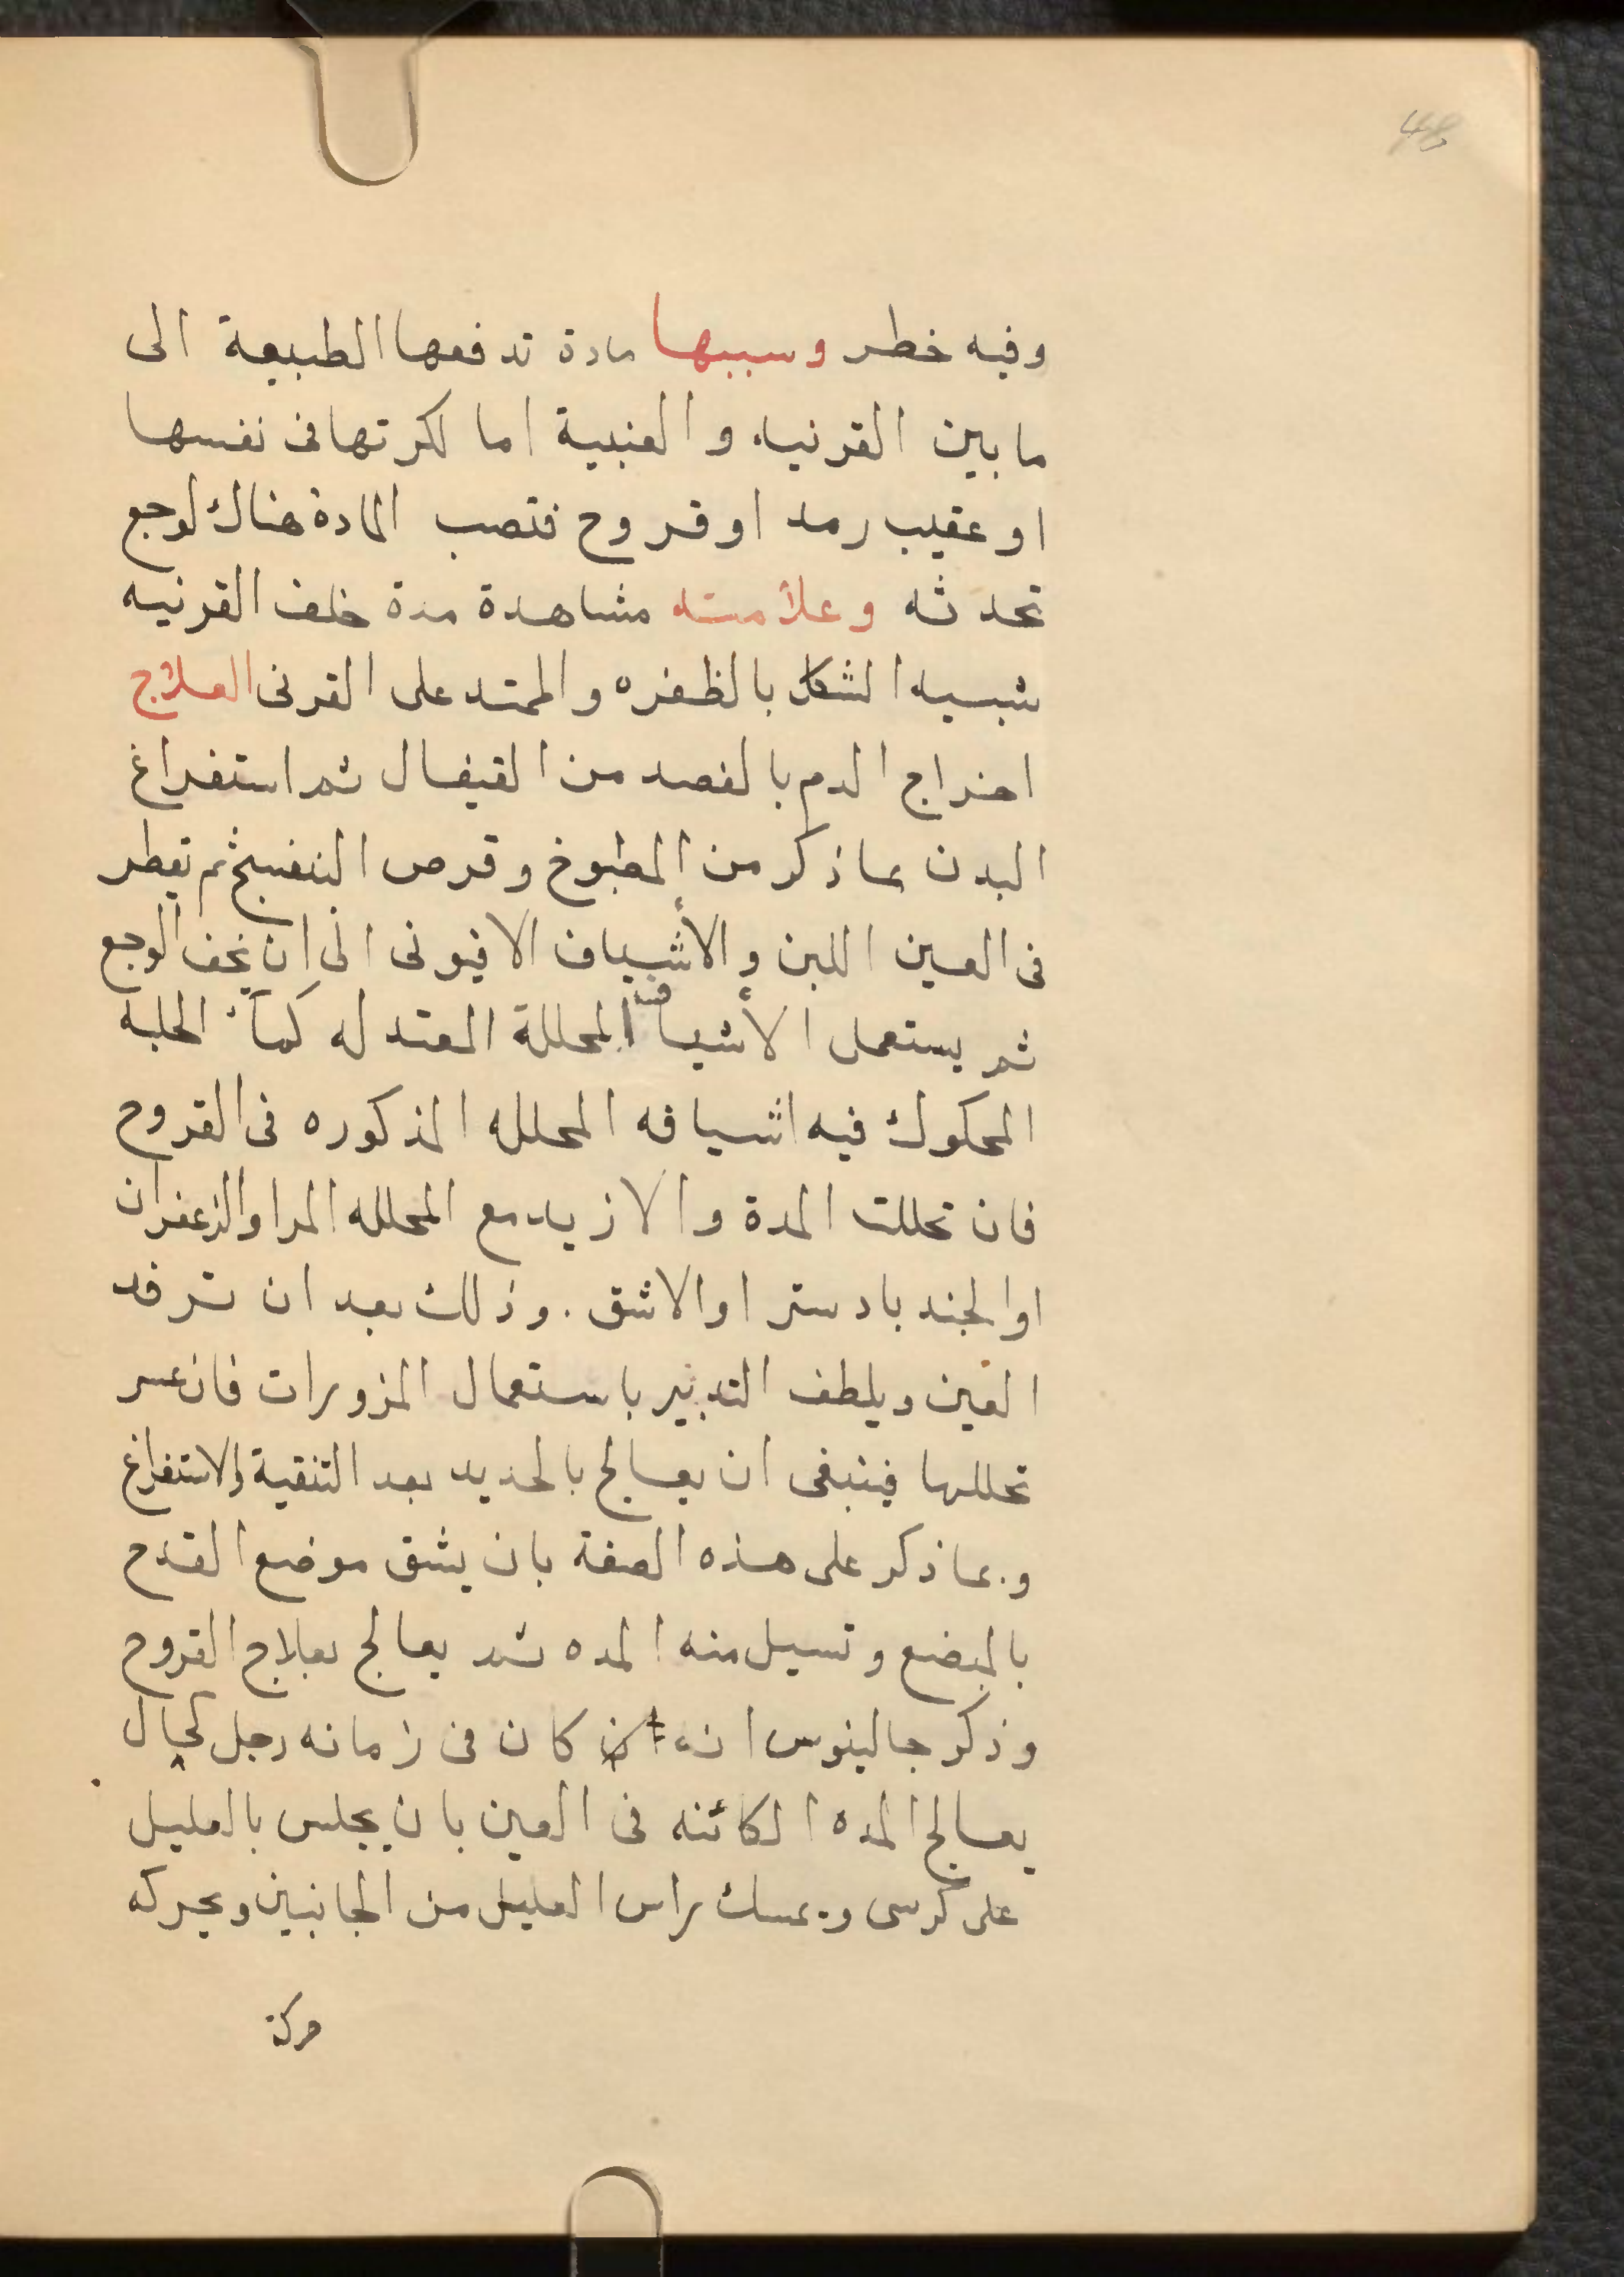 48
وفيه خطر وسببها مادة تدفعها الطبيعة الى
ما بين القرنيه والعنبية اما لكثرتها فى نفسها
او عقيب رمد او قروح فتصب المادة هناك لوجع
تحدثه وعلامته مشاهدة مدة خلف القرنيه
شبيه الشكل بالظفره والممتد على القرنى العلاج
اخراج الدم بالفصد من القيفال ثم استفراغ
البدن بماذكر من المطبوخ وقرص البنفسج ثم تقطر
فى العين اللبن والأشياف الافيونى الى ان يخف الوجع
ثم يستعمل الأشيافه المحللة المعتدله كمآء الحلبه
المحكوك فيه اشيافه المحلله المذكوره فى القروح
فان تحللت المدة والا زيد مع المحلله المر او الزعفران
او الجند بادستر او الاشق . وذلك بعد ان ترفد
العين ويلطف التدبير باستعمال المزورات فان عسر
تحللها فينبغى ان يعالج بالحديد بعد التنقية والاستفراغ
وبماذكر على هذه الصفة بان يشق موضع القدح
بالمبضع وتسيل منه المده ثم يعالج بعلاج القروح
وذكر جالينوس انه كان فى زمانه رجل كحال
يعالج المده الكائنه فى العين بان يجلس بالعليل
على كرسى ويمسك براس العليل من الجانبين ويحركه
حركة